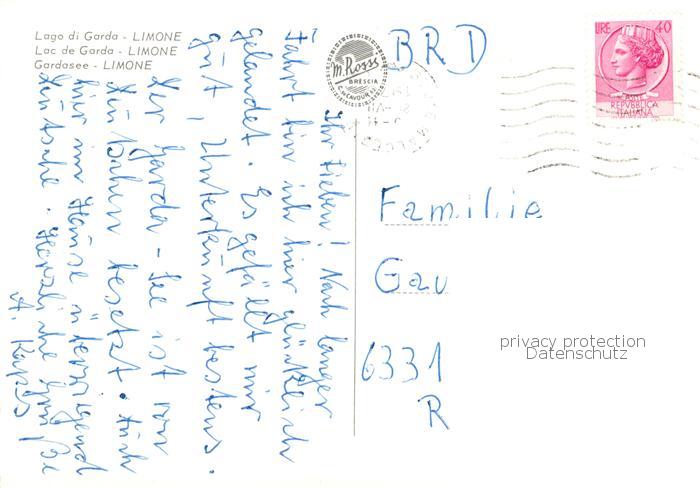 Lago di Garda - LIMONE
Lac de Garda - LIMONE
Gardasee - LIMONE
m. Rossi
BRESCIA
C. CAVOUR
BRD
LIRE 40
REPVBBLICA
ITALIANA
Ihr Lieben! Nach langer
Fahrt bin ich hier glücklich
gelandet. Es gefällt mir
gut, Unterkunft bestens.
Der Garda-See ist von
Deutschen besetzt. Auch
hier im Hause überwiegend
Deutsche. Herzliche Grüße
A.
Familie
Gau
6331
R
privacy protection
Datenschutz